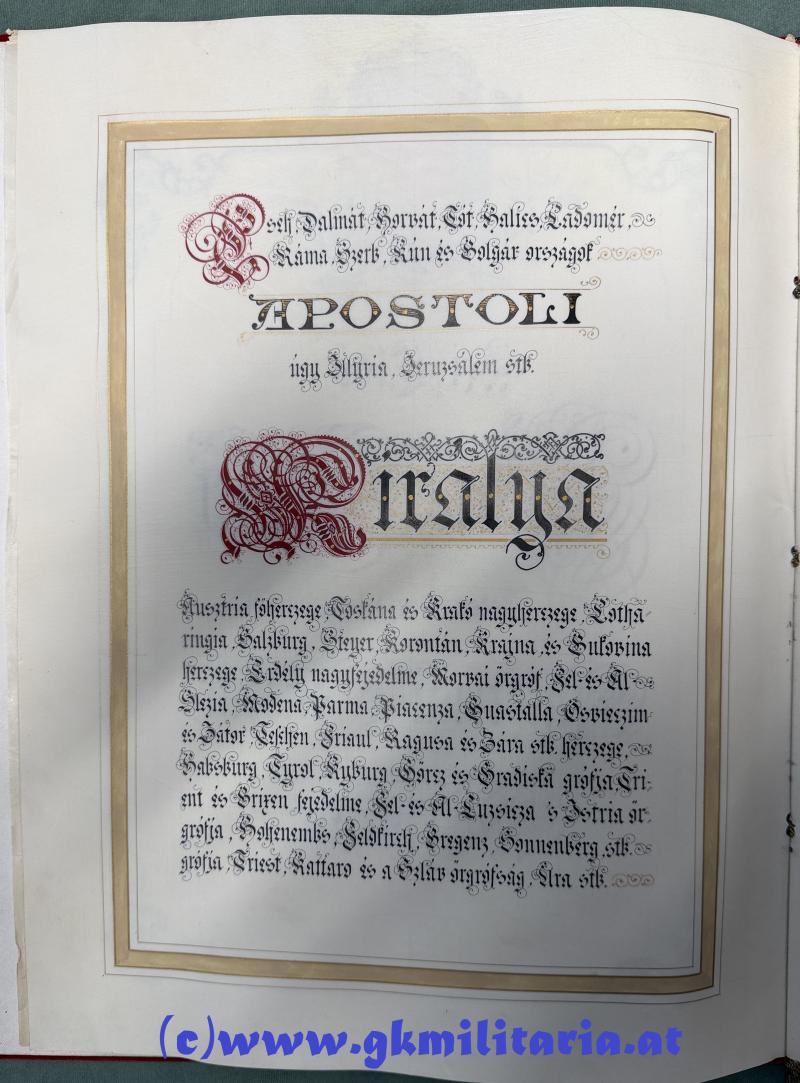 Cseh, Dalmát, Horvát, Tót, Halics, Ladomér,
Ráma, Szerb, Kún és Bolgár országok
APOSTOLI
úgy Illyria, Jeruzsálem stb.
Királya
Ausztria főherczege, Toskána és Krakó nagyherczege, Lotha-
ringia, Salzburg, Steyer, Korontán, Krajna és Bukovina
herczege, Erdély nagyfejedelme, Morvai őrgróf, Fel- és Al-
Slezia, Modena, Parma, Piacenza, Guastalla, Osvieczim
és Zátor Teschen, Friaul, Ragusa és Zára stb. herczege,
Habsburg, Tyrol, Kyburg, Görcz és Gradiska grófja, Tri-
ent és Brixen fejedelme, Fel- és Al-Luzsicza 's Istria őr-
grófja, Hohenembs, Feldkirch, Bregenz, Sonnenberg, stb.
grófja, Triest, Kattaro és a Szláv őrgrófság, Ura stb.
(c)www.gkmilitaria.at